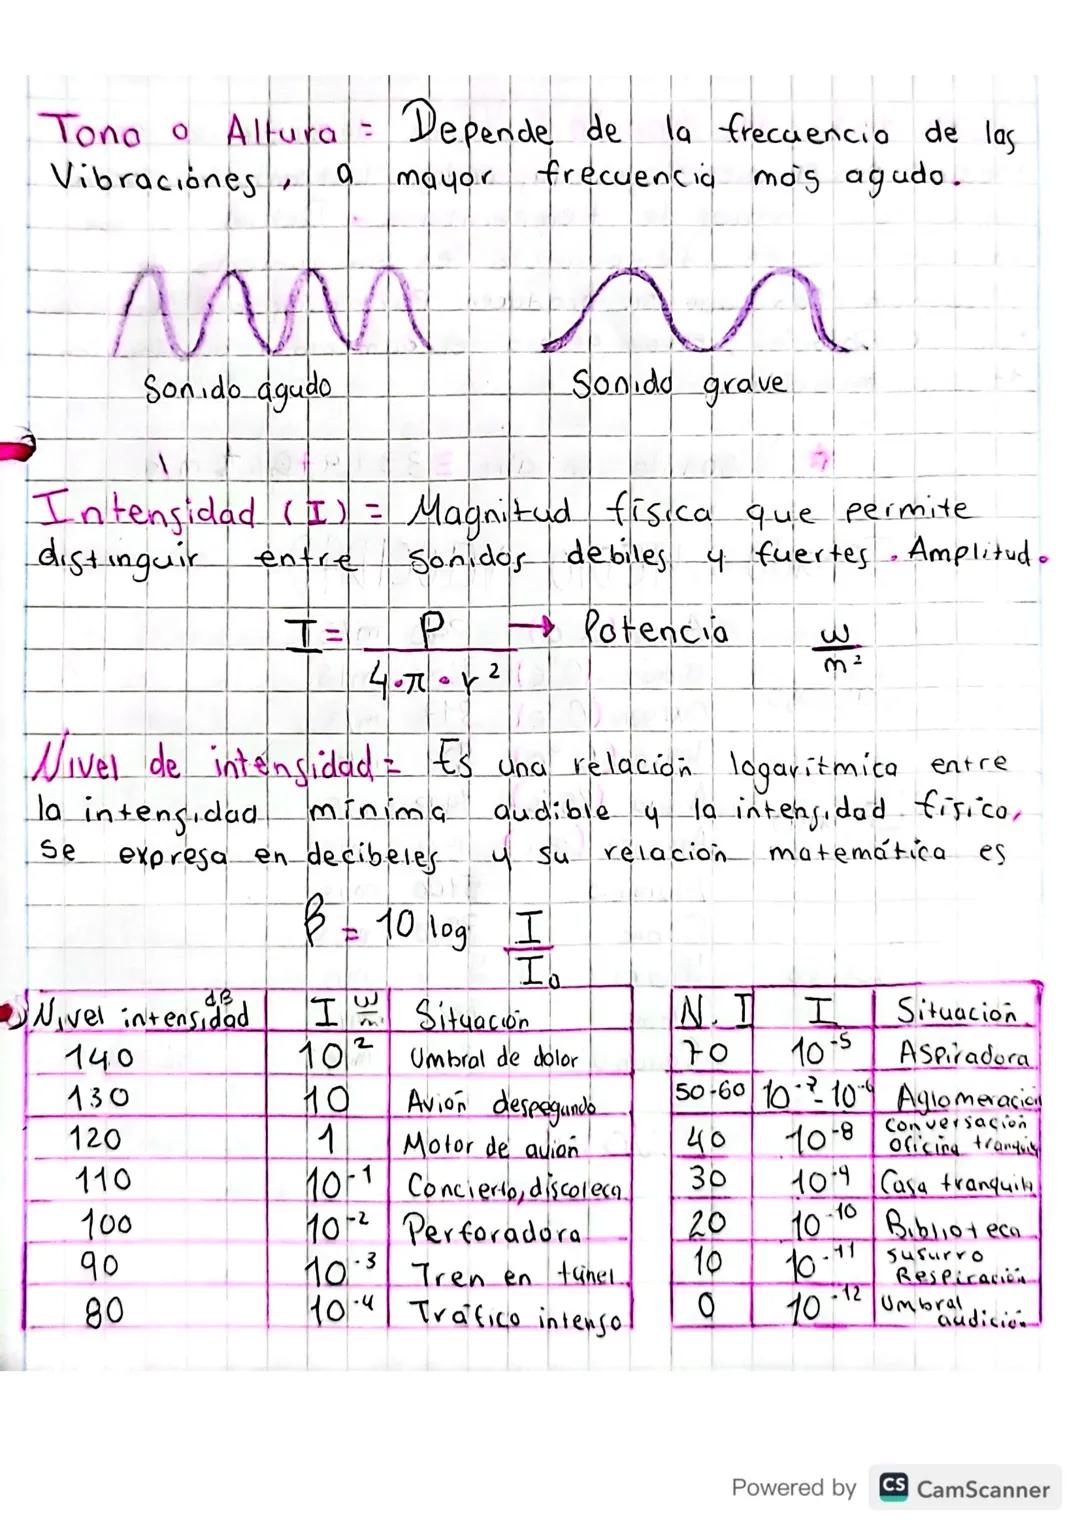 Tono o Altura = Depende de la frecuencia de las
Vibraciones, a mayor frecuencia más agudo.
Sonido agudo
Sonido grave
Intensidad (I) = Magnitud física que permite
distinguir entre sonidos debiles y fuertes. Amplitud.
I = P / 4·π·r² → Potencia w/m²
Nivel de intensidad = Es una relación logarítmica entre
la intensidad mínima audible y la intensidad físico,
se expresa en decibeles y su relación matemática es
β = 10 log I/I₀
Nivel intensidad dB | I w/m² | Situación
140 | 10² | Umbral de dolor
130 | 10 | Avión despegando
120 | 1 | Motor de avión
110 | 10⁻¹ | Concierto, discoteca
100 | 10⁻² | Perforadora
90 | 10⁻³ | Tren en túnel
80 | 10⁻⁴ | Tráfico intenso
N. I | I | Situación
70 | 10⁻⁵ | Aspiradora
50-60 | 10⁻⁷-10⁻⁶ | Aglomeración
40 | 10⁻⁸ | conversación
oficina tranquila
30 | 10⁻⁹ | Casa tranquila
20 | 10⁻¹⁰ | Biblioteca
10 | 10⁻¹¹ | susurro
Respiración
0 | 10⁻¹² | Umbral
audición
Powered by CS CamScanner